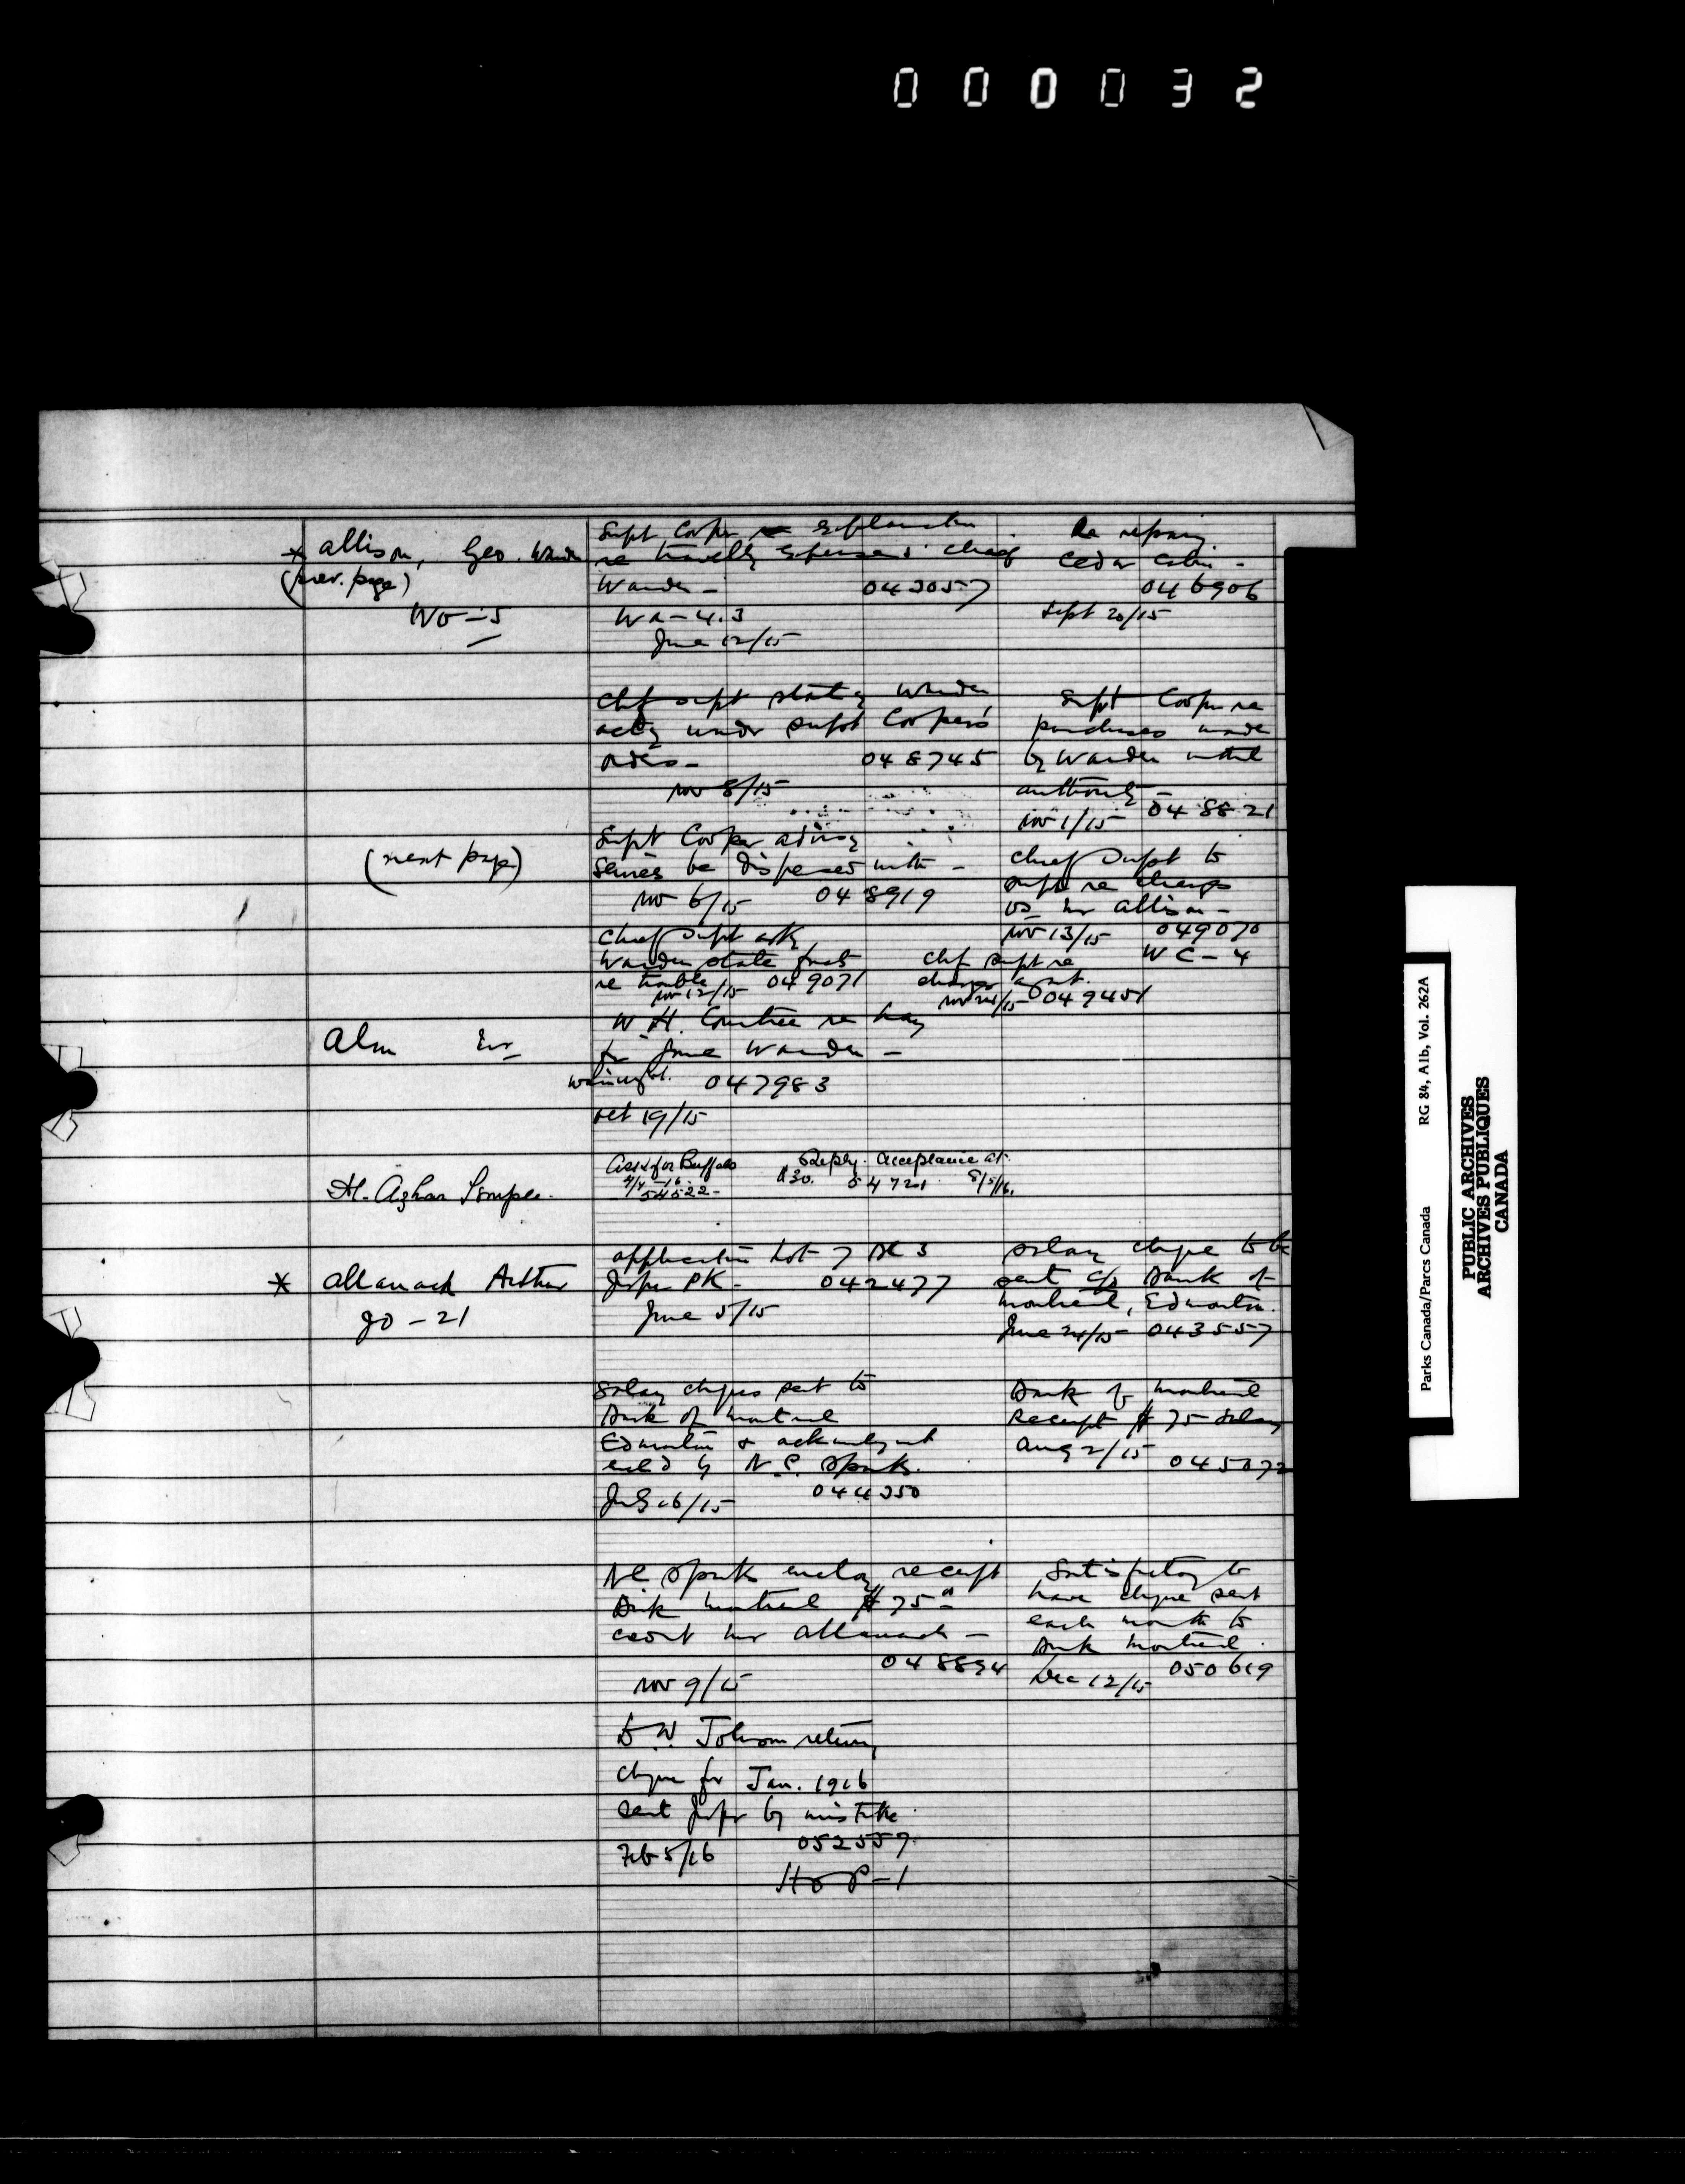 000032
* Allison, Geo. Warden
(prev. page)
WO-5
Supt Cooper re explanation
re travelling expenses chief
Warden - 043057
Wa-4.3
June 12/15
Re repairing
Cedar Cabin -
046906
Sept 20/15
Chf supt stating Warden
acting under supt Cooper's
orders - 048745
Nov 8/15
Supt Cooper re
purchases made
by Warden without
authority -
Nov 1/15 048821
(next page)
Supt Cooper advising
services be dispensed with -
Nov 6/15 048919
Chief Supt to
supt re charges
vs Mr Allison -
Nov 13/15 049070
WC-4
Chief Supt asks
Warden state facts
re trouble 049071
Nov 12/15
Chf supt re
charges agst.
Nov 24/15 049451
Alm Mr
W.H. Courtice re hay
for Game Warden -
Wainwright. 047983
Oct 19/15
Al. Azhar Temple.
Ask for Buffalo
4/4-16-
54522-
Reply. Acceptance at
$30. 54721 8/5/16.
* Allanach Arthur
JO-21
Application Lot 7 Bk 3
Jasper Pk - 042477
June 5/15
Salary cheque to be
sent c/o Bank of
Montreal, Edmonton.
June 24/15 043557
Salary cheques sent to
Bank of Montreal
Edmonton & acknowledgment
by N.C. Sparks.
July 16/15 044350
Bank of Montreal
Receipt $75 salary
Aug 2/15 045072
N.C. Sparks enclosing receipt
Bank Montreal $75
Mr Allanach -
048894
Nov 9/15
Satisfactory to
have cheque sent
each month to
Bank Montreal.
Dec 12/15 050619
D.W. Johnson returning
cheque for Jan. 1916
sent Jasper by mistake.
Feb 5/16 052559
HOP-1
Parks Canada/Parcs Canada RG 84, A1b, Vol. 262A
PUBLIC ARCHIVES
ARCHIVES PUBLIQUES
CANADA